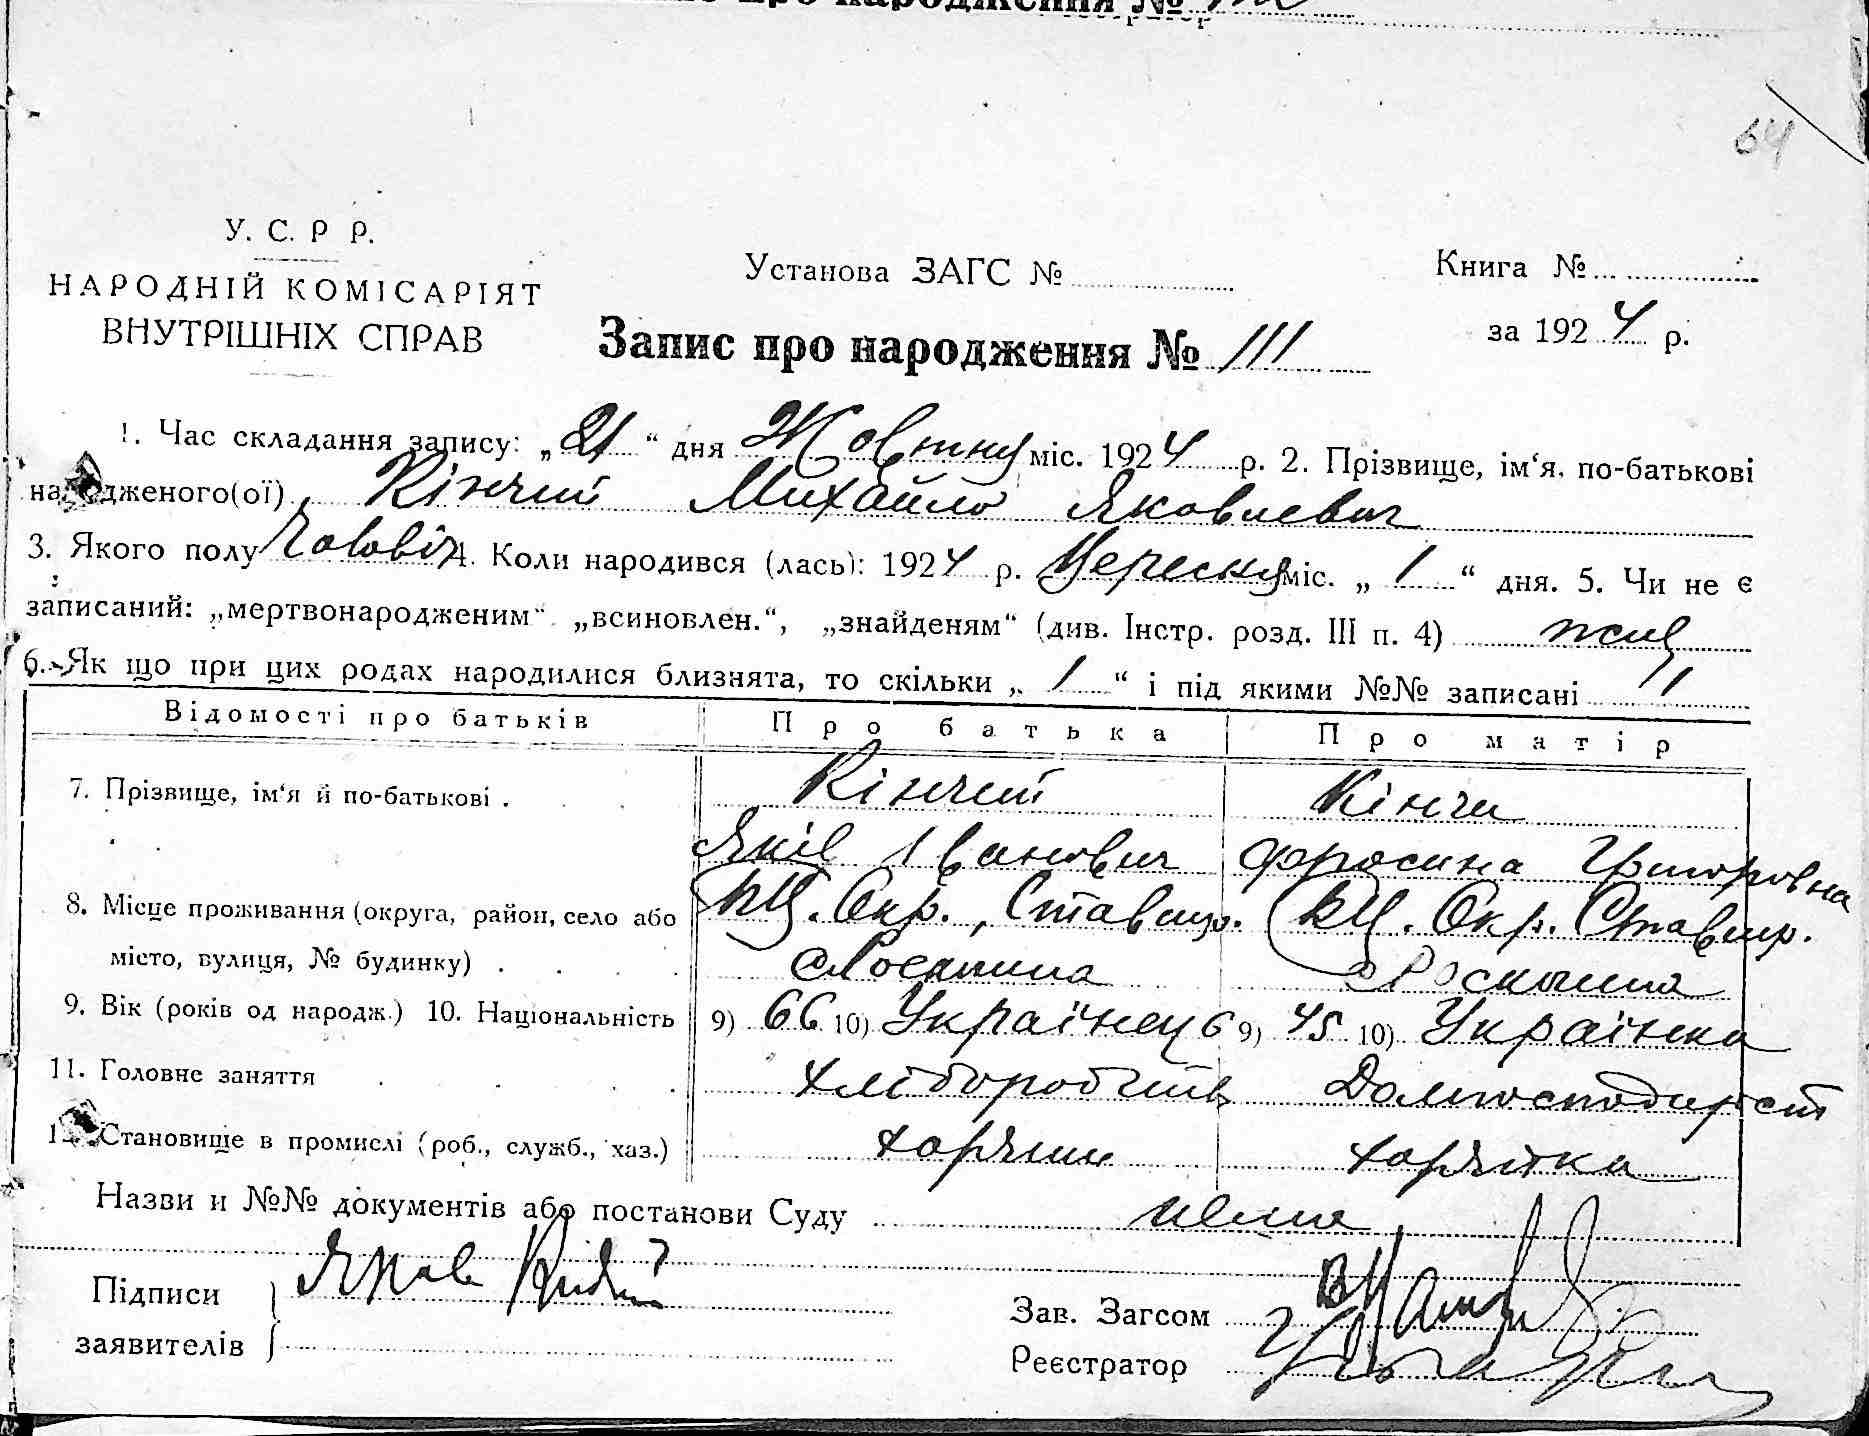 про народження №
64
У. С. Р Р.
НАРОДНІЙ КОМІСАРІЯТ
ВНУТРІШНІХ СПРАВ
Установа ЗАГС №
Книга №
за 1924 р.
Запис про народження № 111
1. Час складання запису: „21“ дня Жовтню міс. 1924 р. 2. Прізвище, ім‘я, по-батькові
народженого(ої) Кінчий Михайло Яковлевич
3. Якого полу Чоловіч 4. Коли народився (лась): 1924 р. Вереслу міс. „1“ дня. 5. Чи не є
записаний: „мертвонародженим“ „всиновлен.“, „знайденям“ (див. Інстр. розд. III п. 4)
6. Як що при цих родах народилися близнята, то скільки „1“ і під якими №№ записані 11
Відомості про батьків Про батька Про матір
7. Прізвище, ім‘я й по-батькові . Кінчий Кінчи
Яків Іванович Фросина Григоровна
8. Місце проживання (округа, район, село або БЦ. Окр., Ставищ. БЦ. Окр. Ставищ.
місто, вулиця, № будинку) . с Роскішна
9. Вік (років од народж.) 10. Національність 9) 66 10) Українец 9) 45 10) Українка
11. Головне заняття хліборобств Домогосподарст
12. Становище в промислі (роб., служб., хаз.) хорчин хорчінка
Назви и №№ документів або постанови Суду нема
Підписи Яков
заявителів
Зав. Загсом
Реєстратор